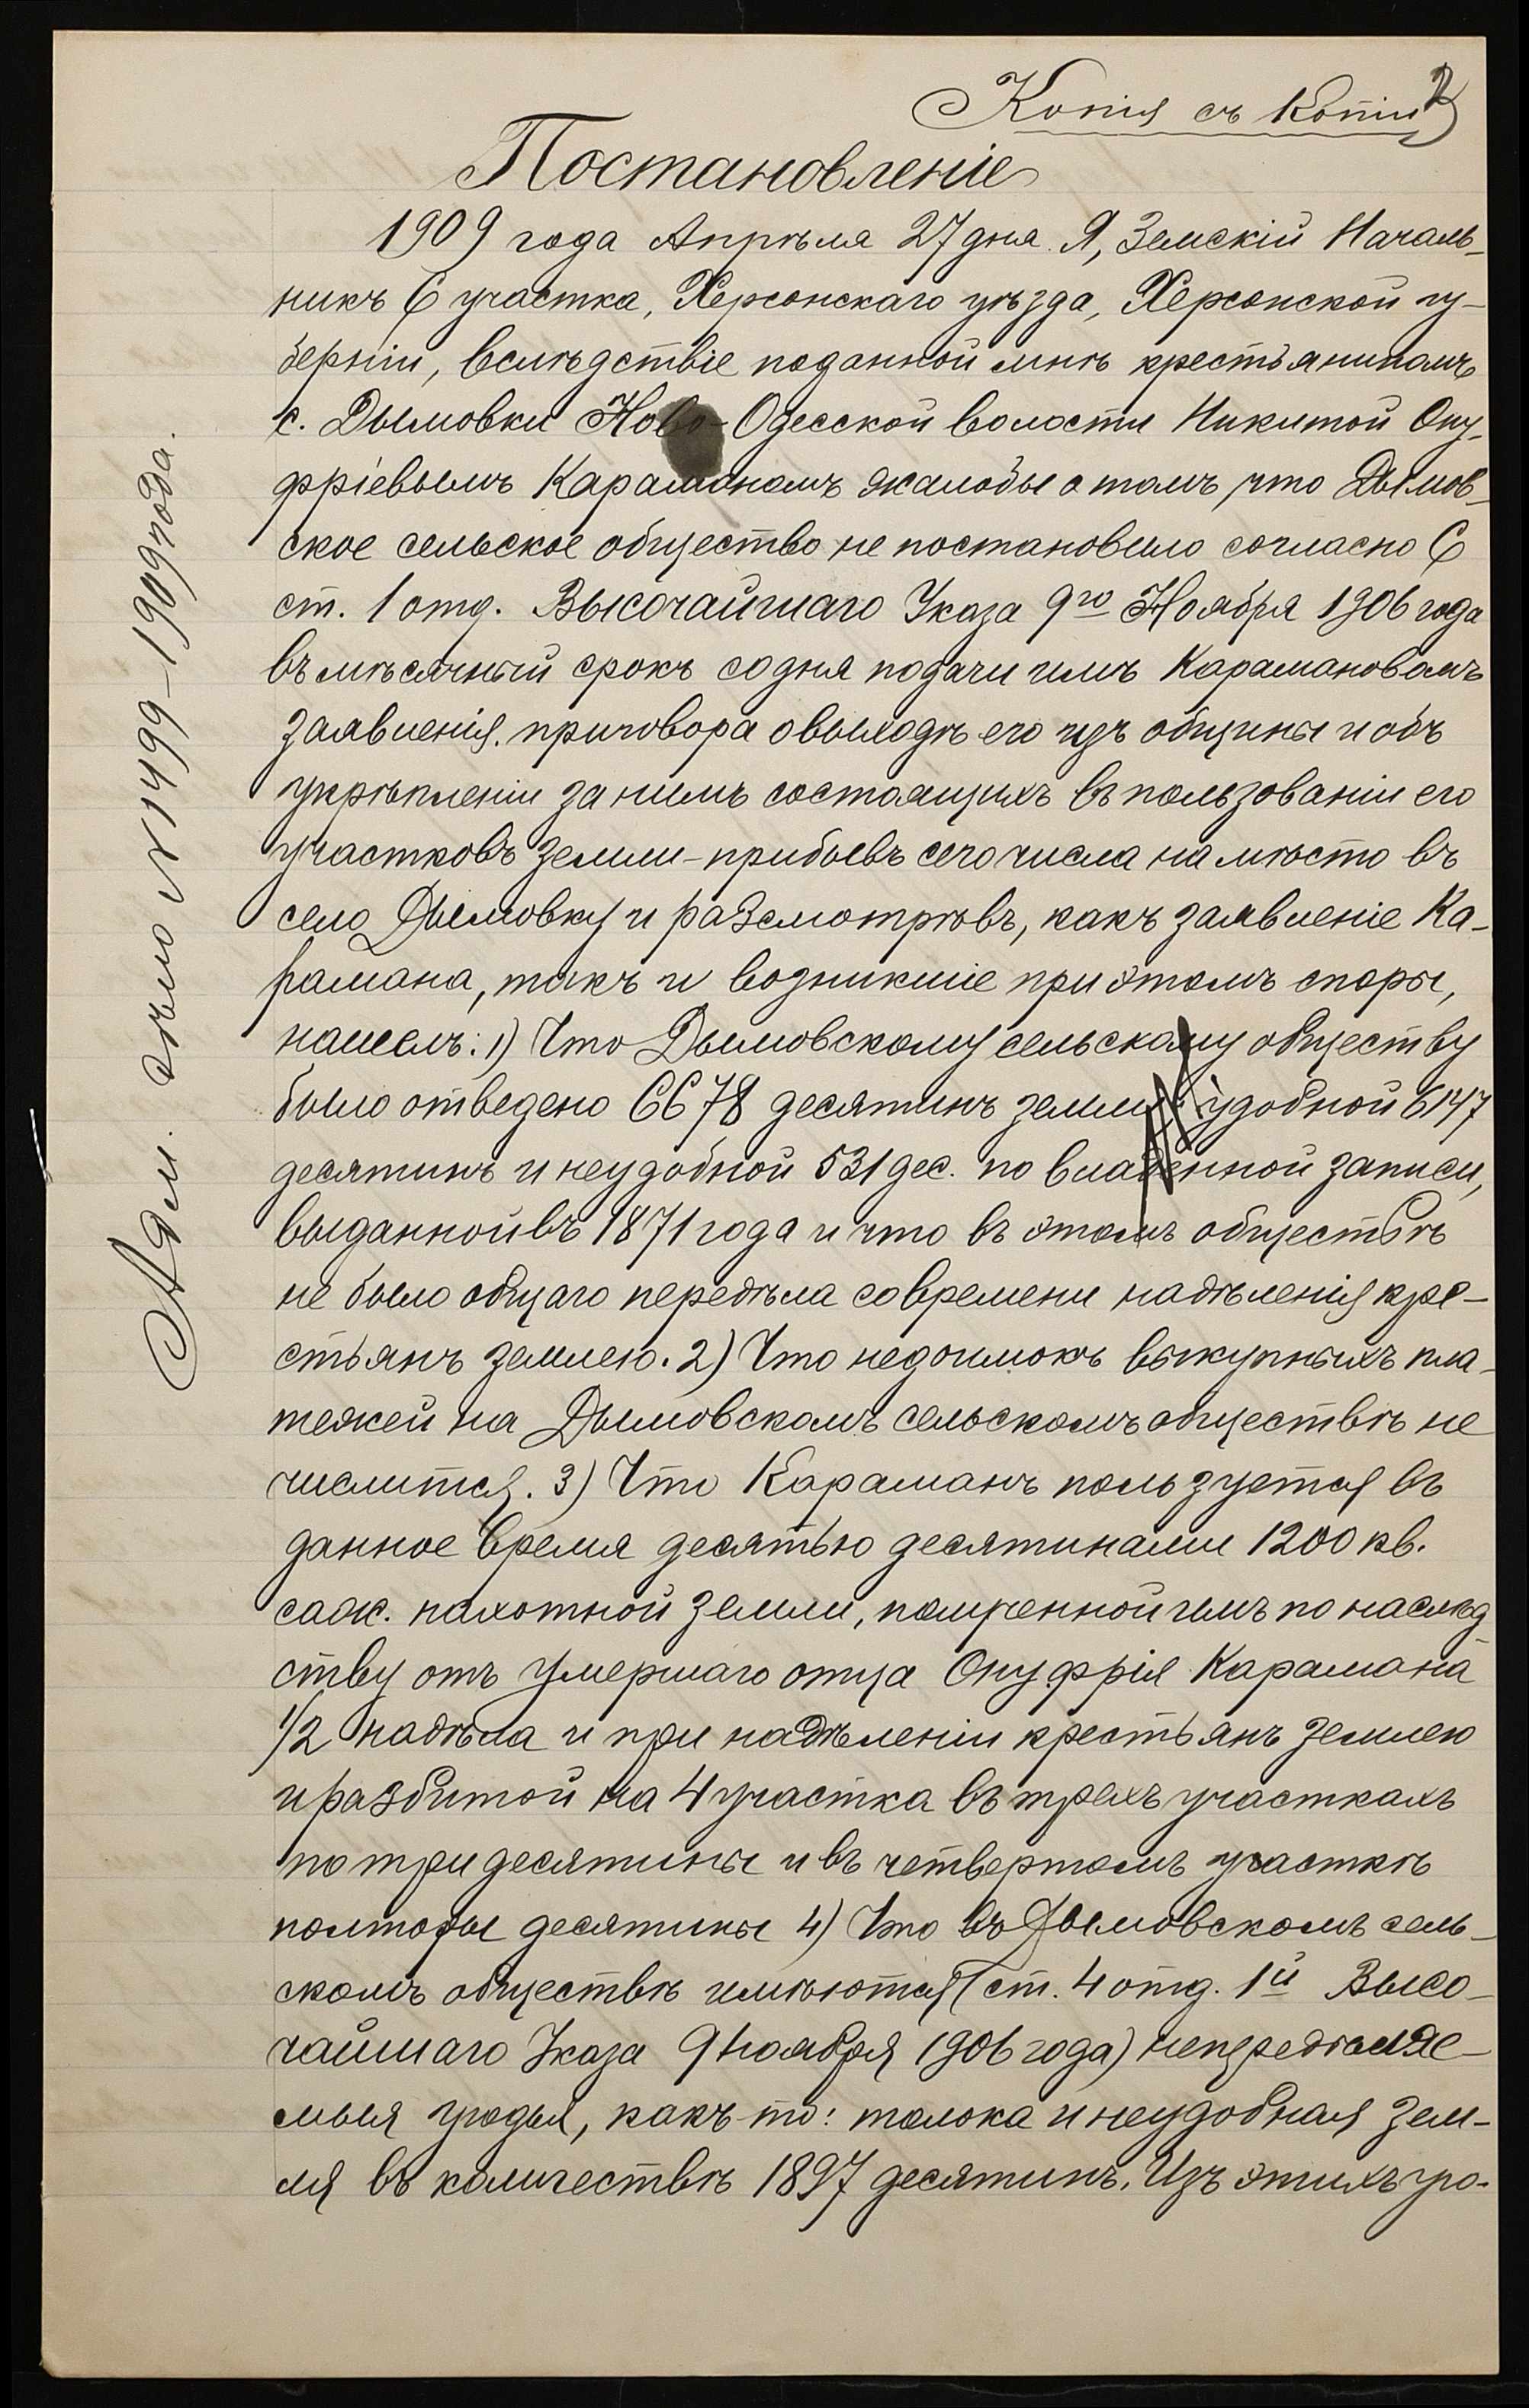 Копія съ копіи
2
Постановленіе
1909 года Апрѣля 27 дня. Я, Земскій Началь-
никъ 6 участка, Херсонскаго уѣзда, Херсонской гу-
берніи, вслѣдствіе поданной мнѣ крестьяниномъ
с. Дымовки Ново-Одесской волости Никитой Ону-
фріевымъ Караманомъ жалобы о томъ, что Дымов-
ское сельское общество не постановило согласно 6
ст. 1 отд. Высочайшаго Указа 9го Ноября 1906 года
въ мѣсячный срокъ со дня подачи имъ Карамановымъ
заявленія, приговора о выходѣ его изъ общины и объ
укрѣпленіи за нимъ состоящихъ въ пользованіи его
участковъ земли-прибывъ сего числа на мѣсто въ
село Дымовку и разсмотрѣвъ, какъ заявленіе Ка-
рамана, такъ и возникшіе при этомъ споры,
нашелъ: 1) Что Дымовскому сельскому обществу
было отведено 6678 десятинъ земли, удобной 6147
десятинъ и неудобной 531 дес. по владенной записи,
выданной въ 1871 года и что въ этомъ обществѣ
не было общаго передѣла со времени надѣленія кре-
стьянъ землею. 2) Что недоимокъ выкупныхъ пла-
тежей на Дымовскомъ сельскомъ обществѣ не
числится. 3) Что Караманъ пользуется въ
данное время десятью десятинами 1200 кв.
саж. пахотной земли, полученной имъ по наслѣд-
ству отъ умершаго отца Онуфрія Карамана
1/2 надѣла и при надѣленіи крестьянъ землею
и разбитой на 4 участка въ трехъ участкахъ
по три десятины и въ четвертомъ участкѣ
полторы десятины 4) Что въ Дымовскомъ сель-
скомъ обществѣ имѣются (ст. 4 отд. 1й Высо-
чайшаго Указа 9 Ноября 1906 года) непередѣляе-
мыя угодья, какъ-то: толока и неудобная зем-
ля въ количествѣ 1897 десятинъ. Изъ этихъ уго-
Адм. дѣло № 1499-1909 года.